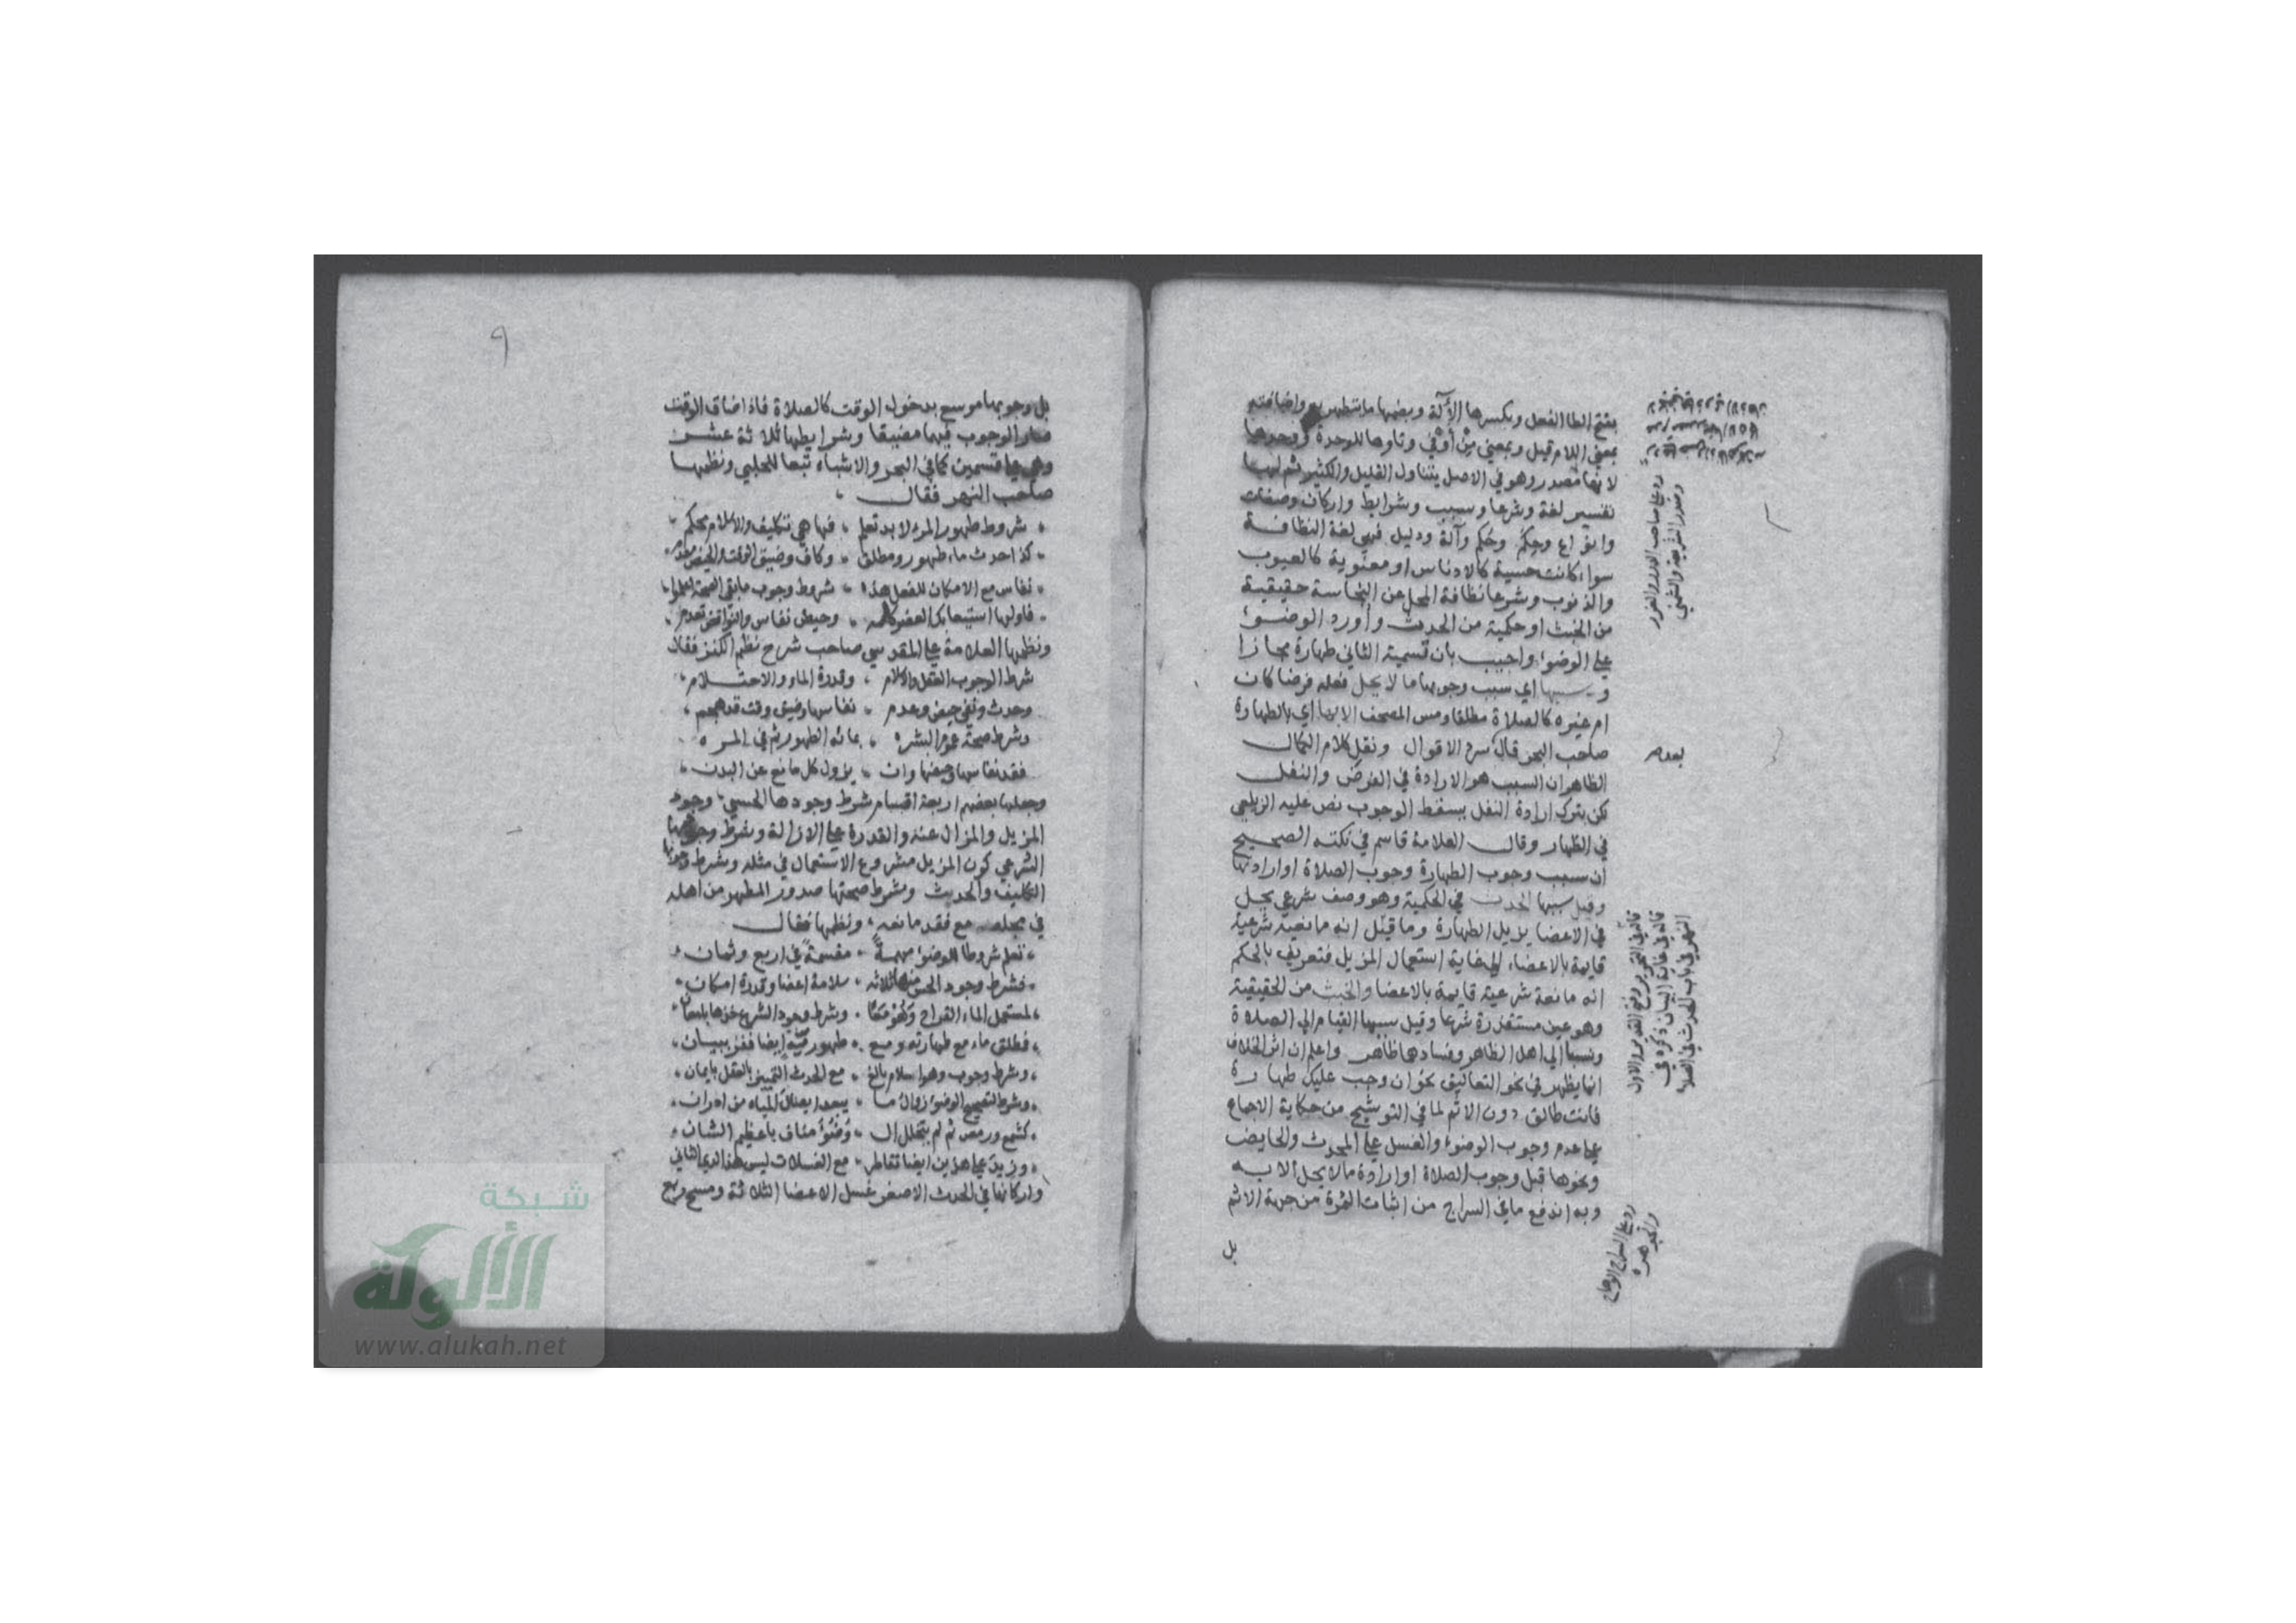 بفتح الطا الفعل وبكسرها الآلة وبضمها ما يتطهر به واضافته
بمعنى اللام قيل وبمعنى من او في وتاوها للوحدة ووحدها
لانها مصدر وهو في الاصل يتناول القليل والكثير ثم لها
تفسير لغة وشرعا وسبب وشرايط واركان وصفات
وانواع وحِكَم وحُكم وآلة ودليل فهي لغة النظافة
سواء كانت حسية كالادناس او معنوية كالعيوب
والذنوب وشرعا نظافة المحل عن النجاسة حقيقية
من الخبث او حكمية من الحدث واورد الوضوء
على الوضوء واجيب بان تسمية الثاني طهارة مجازا
وسببها اي سبب وجوبها ما لا يحل فعله فرضا كان
ام غيره كالصلاة مطلقا ومس المصحف الا بها اي بالطهارة
صاحب البحر قال سرد الاقوال ونقل كلام الكمال
الظاهر ان السبب هو الارادة في الفرض والنفل
لكن بترك ارادة النفل يسقط الوجوب نص عليه الزيلعي
في الظهار وقال العلامة قاسم في نكته الصحيح
ان سبب وجوب الطهارة وجوب الصلاة او ارادتها
وقيل سببها الحدث في الحكمية وهو وصف شرعي يحل
في الاعضا يزيل الطهارة وما قيل انه مانعية شرعية
قايمة بالاعضاء الى غاية استعمال المزيل فتعريف بالحكم
انه مانعة شرعية قايمة بالاعضا والخبث من الحقيقية
وهو عين مستقذرة شرعا وقيل سببها القيام الى الصلاة
ونسبا الى اهل الظاهر وفسادها ظاهر واعلم ان اثر الخلاف
انما يظهر في نحو التعاليق نحو ان وجب عليك طهارة
فانت طالق دون الاثم لما في التوشيح من حكاية الاجماع
على عدم وجوب الوضوء والغسل على المحدث والحايض
ونحوها قبل وجوب الصلاة او ارادة ما لا يحل الا به
وبه اندفع ما في السراج من اثبات الثمرة من جهة الاثم
بل
رد على صاحب الدرر والغرر
وصدر الشريعة والشمني
بعد
قاله في التحرير وفتح القدير والاول
قاله في غاية البيان ذكره في
النهر في باب الحدث في الصلاة
رد على السراج الوهاج
والجوهرة
٩
بل وجوبها موسع بدخول الوقت كالصلاة فاذا ضاق الوقت
صار الوجوب فيها مضيقا وشرايطها ثلاثة عشر
وهي على قسمين كما في البحر والاشباه تبعا للحلبي ونظمها
صاحب النهر فقال
شروط طهور المرء لابد تعلم فها هي تكليف والاسلام يحكم
كذا حدث ماء طهور ومطلق وكاف وضيق الوقت والحيض
نفاس مع الامكان للفعل هذه شروط وجوب مابقي الصحة اعلموا
فاولها استيعابك العضو كله وحيض نفاس والنواقض تعدم
ونظمها العلامة علي المقدسي صاحب شرح نظم الكنز فقال
شرط الوجوب العقل والاسلام وقدرة الماء والاحتلام
وحدث ونفي حيض وعدم نفاسها وضيق وقت قد هجم
وشرط صحة عموم البشره بمائه الطهور ثم في المره
فقد نفاسها وحيضها وان يزول كل مانع عن البدن
وجعلها بعضهم اربعة اقسام شرط وجودها الحسي وجود
المزيل والمزال عنه والقدرة على الازالة وشرط وجودها
الشرعي كون المزيل مشروع الاستعمال في مثله وشرط وجوبها
التكليف والحدث وشرط صحتها صدور المطهر من اهله
في محله مع فقد مانعه ونظمها فقال
تعلم شروطا للوضوء مهمة مقسمة في اربع وثمان
فشرط وجود الحس منها ثلاثة سلامة اعضا وقدرة امكان
لمستعمل الماء القراح وهو معا وشرط وجود الشرع خذها بامعان
فمطلق ماء مع طهارته ومع طهوريّة ايضا ففز ببيان
وشرط وجوب وهو اسلام بالغ مع الحدث التمييز بالعقل يا عان
وشرط لتصحيح الوضوء زوال ما يبعد ايصال المياه من ادران
كشمع ورمص ثم لم يتخلل ال وضوء مناف يا عظيم الشان
وزيد على هذين ايضا تقاطر مع الغسلات ليس هذا لدى الثاني
واركانها في الحدث الاصغر غسل الاعضا الثلاثة ومسح ربع
شبكة
الألوكة
www.alukah.net